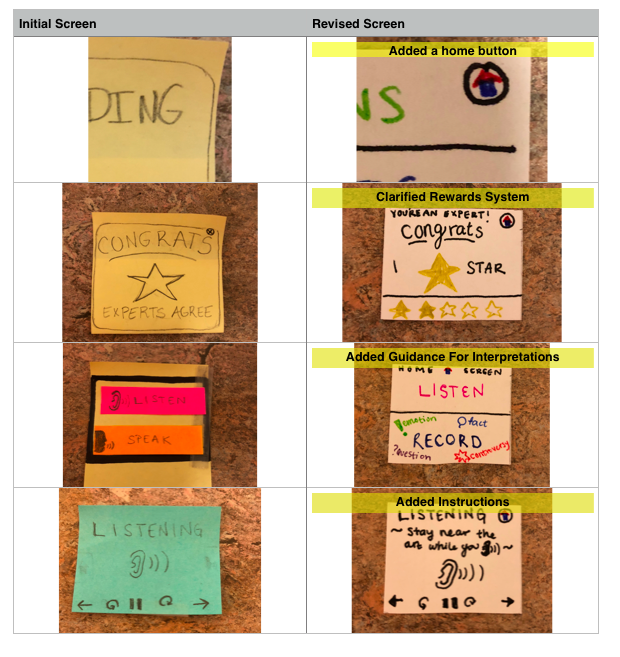 Initial Screen
Revised Screen
DING
Added a home button
NS
CONGRATS
EXPERTS AGREE
Clarified Rewards System
YOU'RE AN EXPERT!
congrats
1 STAR
LISTEN
SPEAK
Added Guidance For Interpretations
HOME SCREEN
LISTEN
! emotion
fact
RECORD
? question
controversy
LISTENING
Added Instructions
LISTENING
~ Stay near the
art while you ~